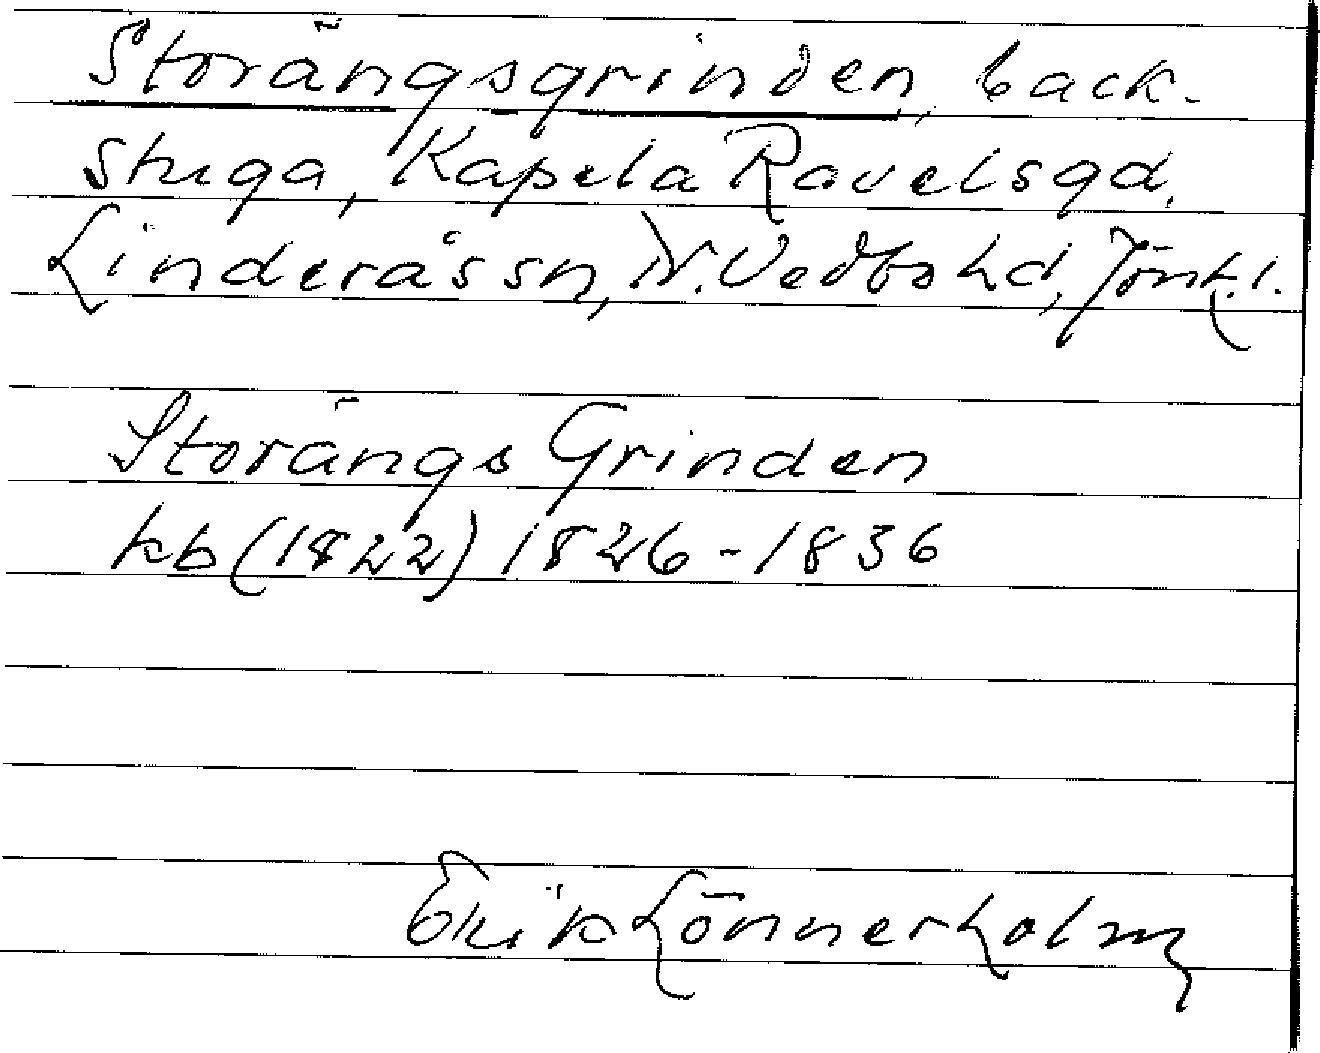 Storängsgrinden, back-
stuga, Kapela Ravelsgd,
Linderås sn, N. Vedbo hd, Jönk. l.
Storängs Grinden
kb (1822) 1826-1836
Erik Lönnerholm